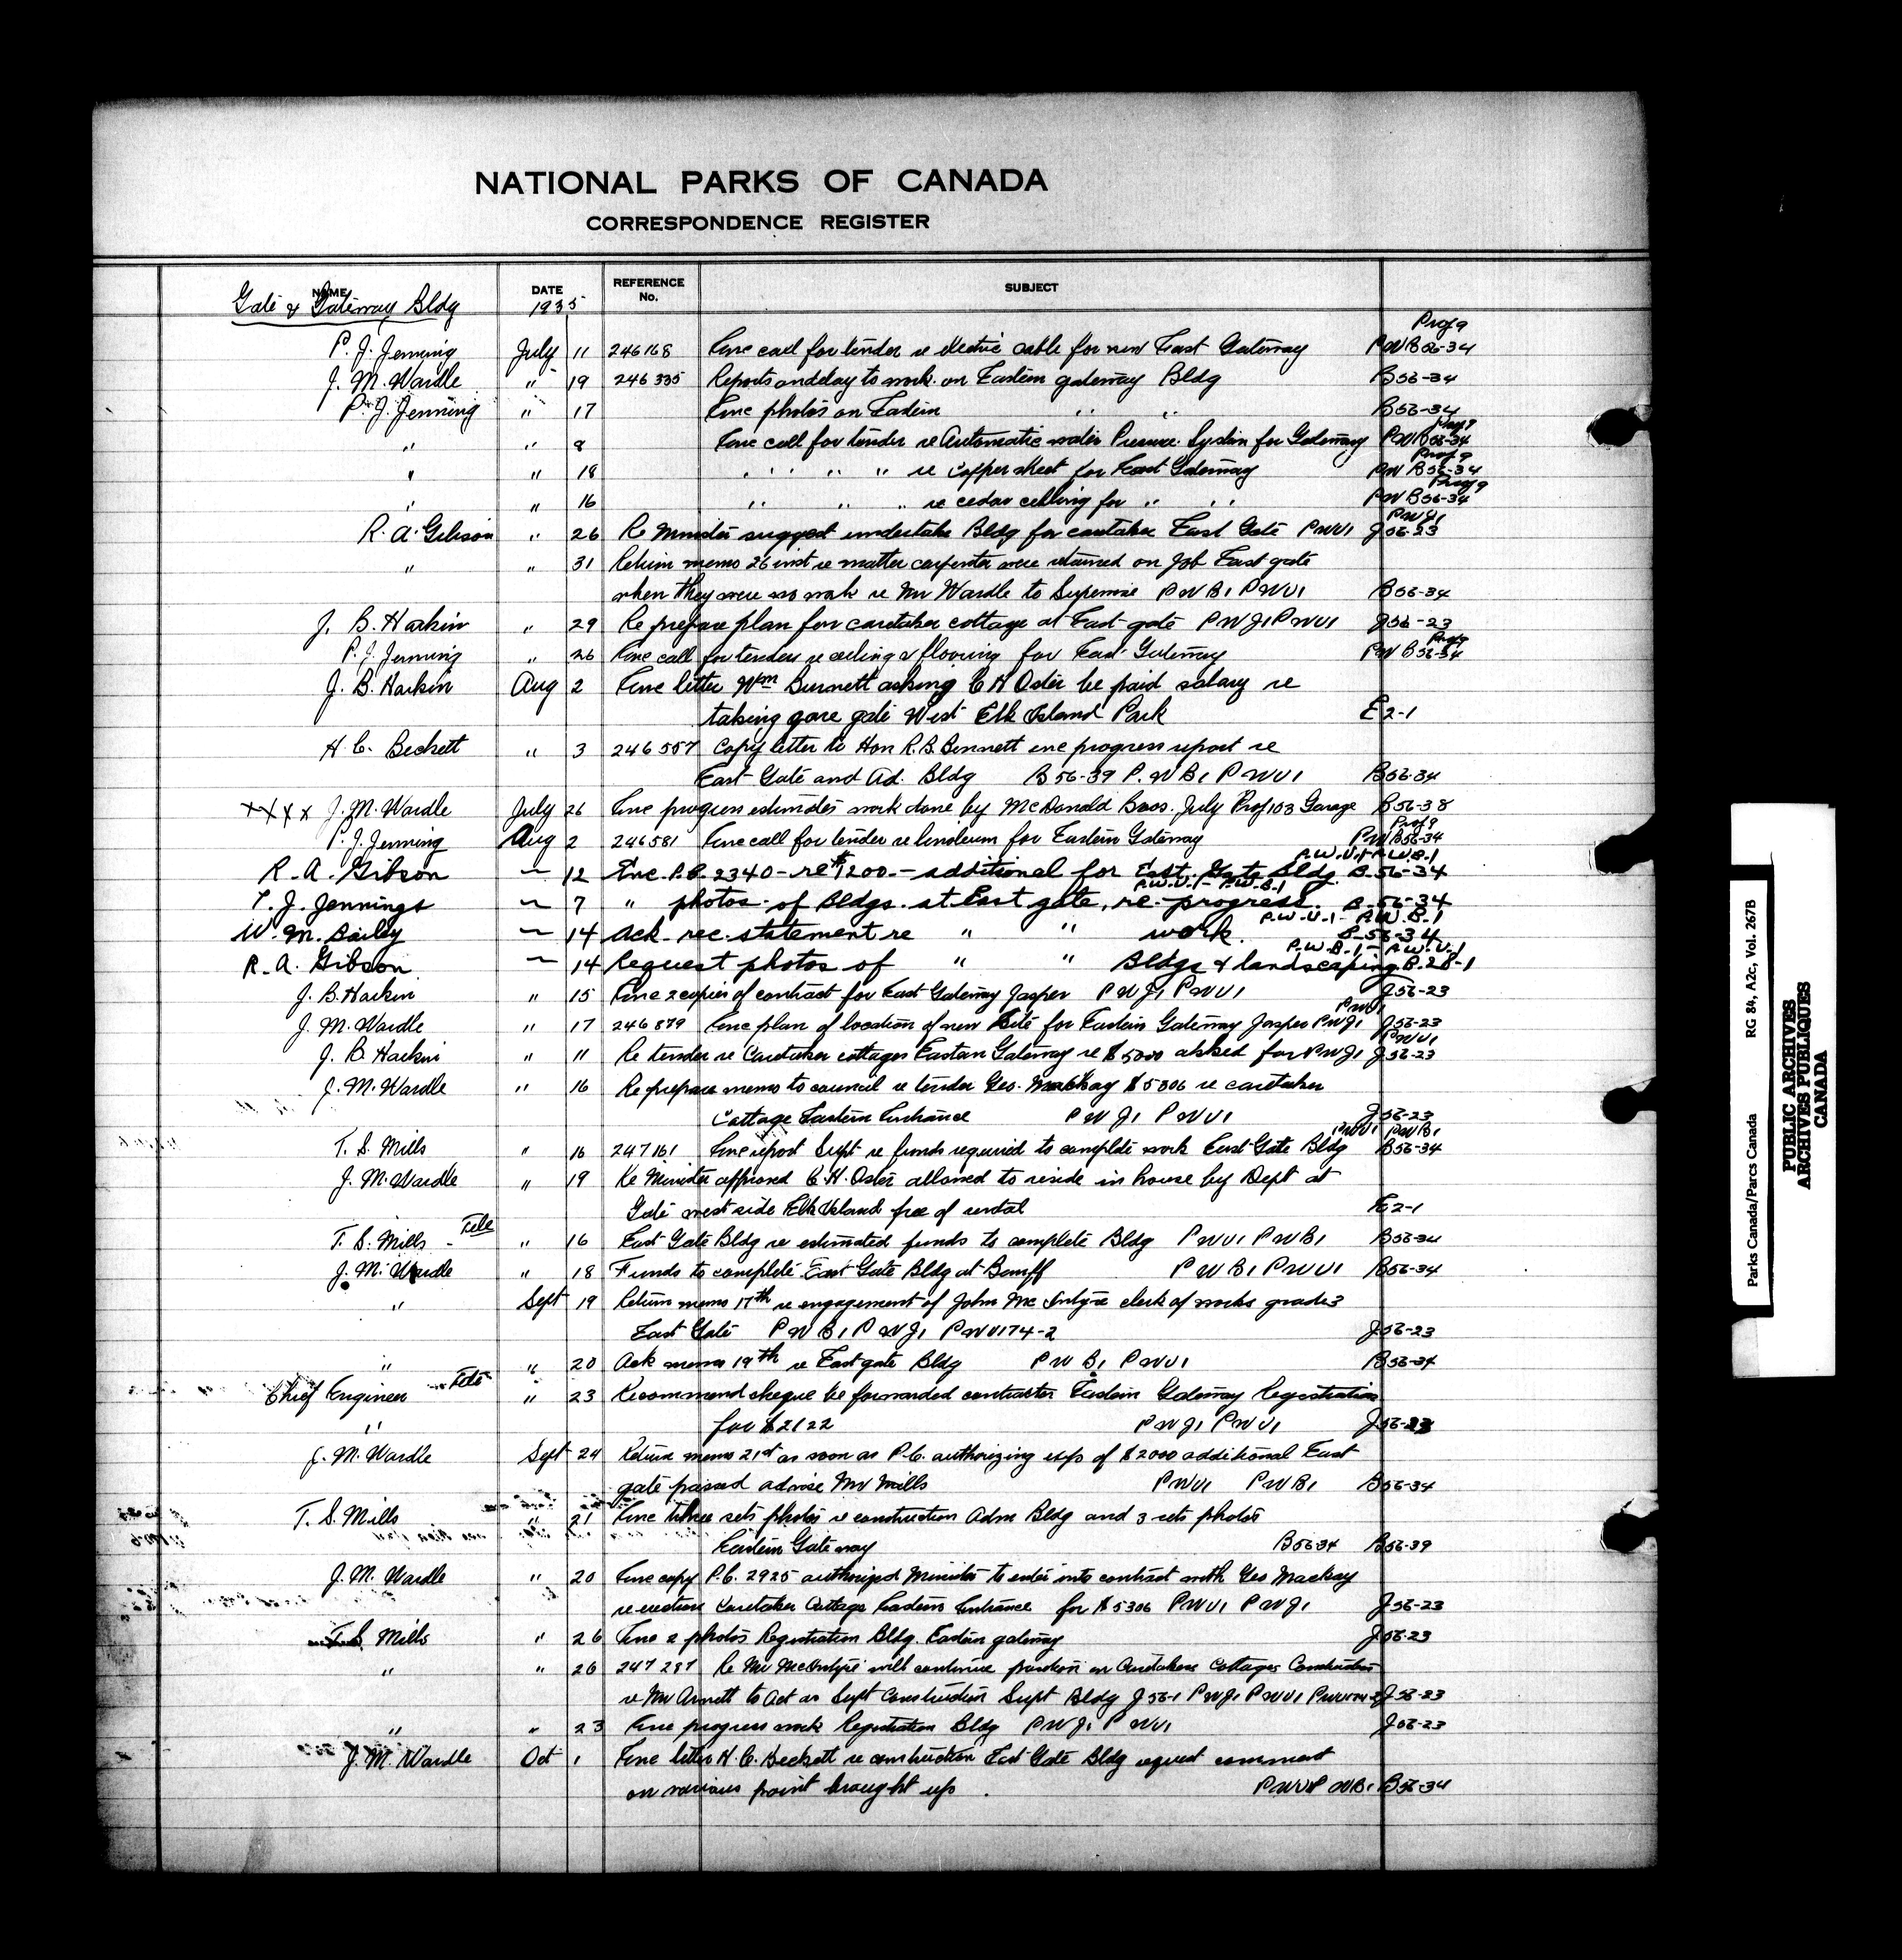 NATIONAL PARKS OF CANADA
CORRESPONDENCE REGISTER
NAME DATE REFERENCE No. SUBJECT
Gate & Gateway Bldg 1935
Prof 9
P. J. Jenning July 11 246168 Enc call for tender re electric cable for new East Gateway PWB56-34
J. M. Wardle " 19 246335 Reports and delay to work on Eastern gateway Bldg B56-34
P. J. Jenning " 17 Enc photos on Eastern " " B56-34
Prof 9
" " 8 Enc call for tender re Automatic water Pressure System for Gateway PWB56-34
Prof 9
" " 18 " " " " re copper sheet for East Gateway PWB56-34
Prof 9
" " 16 " " " re cedar ceiling for " " PWB56-34
PWJ1
R. A. Gibson " 26 Re Minister suggest undertake Bldg for caretaker East Gate PWU1 J56-23
" " 31 Return memo 26 inst re matter carpenter were retained on job East gate
when they were no work re Mr Wardle to Supervise PWB1 PWU1 B56-34
J. B. Harkin " 29 Re prepare plan for caretaker cottage at East gate PWJ1 PWU1 J56-23
Prof 9
P. J. Jenning " 26 Enc call for tenders re ceiling & flooring for East Gateway PWB56-34
J. B. Harkin Aug 2 Enc letter Wm Burnett asking C H Oster be paid salary re
taking gare gate West Elk Island Park E2-1
H. C. Beckett " 3 246557 Copy letter to Hon R. B. Bennett enc progress report re
East Gate and Ad. Bldg B56-39 P.WB1 PWU1 B56-34
XXXX J. M. Wardle July 26 Enc progress estimates work done by McDonald Bros. July Prof 103 Garage B56-38
Prof 9
P. J. Jenning Aug 2 246581 Enc call for tender re linoleum for Eastern Gateway PWB56-34
P.W.U.1-P.W.B.1
R. A. Gibson — 12 Enc. P.C. 2340 - re $1200. - additional for East. Gate Bldg. B.56-34
P.W.U.1- P.W.B.1
P. J. Jennings — 7 " photos. of Bldgs. at East gate, re-progress. B.56-34
P.W.U.1- P.W.B.1
W. M. Bailey — 14 Ack. rec. statement re " " work. B-56-34
P.W.B.1- P.W.U.1
R. A. Gibson. — 14 Request photos of " " Bldgs & landscaping. B.28-1
J. B. Harkin " 15 Enc 2 copies of contract for East Gateway Jasper PWJ1 PWU1 J56-23
PWU1
J. M. Wardle " 17 246879 Enc plan of location of new site for Eastern Gateway Jasper PWJ1 J56-23
PWU1
J. B. Harkin " " Re tender re Caretaker cottages Eastern Gateway re $5000 asked for PWJ1 J56-23
J. M. Wardle " 16 Re prepare memo to council re tender Geo. Mackay $5306 re caretaker
Cottage Eastern Entrance PWJ1 PWU1 J56-23
PWU1 PWB1
T. S. Mills " 16 247161 Enc report Supt re funds required to complete work East Gate Bldg B56-34
J. M. Wardle " 19 Re Minister approved C. H. Oster allowed to reside in house by Dept at
Gate west side Elk Island free of rental E2-1
T. S. Mills - Tele " 16 East Gate Bldg re estimated funds to complete Bldg PWU1 PWB1 B56-34
J. M. Wardle " 18 Funds to complete East Gate Bldg at Banff PWB1 PWU1 B56-34
" Sept 19 Return memo 17th re engagement of John McIntyre clerk of works grade 3
East Gate PWB1 PWJ1 PWU174-2 J56-23
" " 20 Ack memo 19th re East gate Bldg PWB1 PWU1 B56-34
Chief Engineer - Tele " 23 Recommend cheque be forwarded contractor Eastern Gateway Registration
" for $2122 PWJ1 PWU1 J56-23
J. M. Wardle Sept 24 Return memo 21st as soon as P.C. authorizing exp of $2000 additional East
gate passed advise Mr Mills PWU1 PWB1 B56-34
T. S. Mills " 21 Enc three sets photos re construction Adm Bldg and 3 sets photos
Eastern Gateway B56-34 B56-39
J. M. Wardle " 20 Enc copy P.C. 2925 authorized Minister to enter into contract with Geo Mackay
re erection Caretaker Cottage Eastern Entrance for $5306 PWU1 PWJ1 J56-23
T. S. Mills " 26 Enc 2 photos Registration Bldg. Eastern gateway J56-23
" " 26 247287 Re Mr McIntyre will continue position on Caretakers Cottages Construction
re Mr Arnett to Act as Supt Construction Supt Bldg J56-1 PWJ1 PWU1 J56-23
" " 23 Enc progress work Registration Bldg PWJ1 PWU1 J56-23
J. M. Wardle Oct 1 Enc letter H. C. Beckett re construction East Gate Bldg request comment
on various point brought up. PWU1 PWB1 B56-34
Parks Canada/Parcs Canada RG 84, A2c, Vol. 267B
PUBLIC ARCHIVES
ARCHIVES PUBLIQUES
CANADA